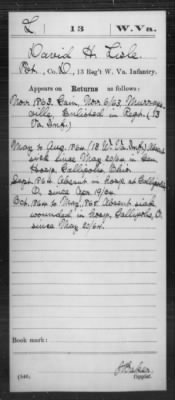 L 13 W. Va.
David H. Lisle
Pvt., Co. D, 13 Reg't W. Va. Infantry.
Appears on Returns as follows:
Nov. 1863, Gain, Nov 6/63, Murrays-
ville, Enlisted in Regt. (13
Va. Inft.)
May to Aug. 1864 (13 W. Va. Inft) Absent
sick since May 20/64 in Gen
Hosp. Gallipolis, Ohio.
Sept. 1864 Absent in hosp at Gallipolis
O. since Apr 19/64
Oct. 1864 to May, 1865 Absent sick
wounded in hosp. Gallipolis, O.
since May 20/64.
Book mark:
(546)
J Baker
Copyist.